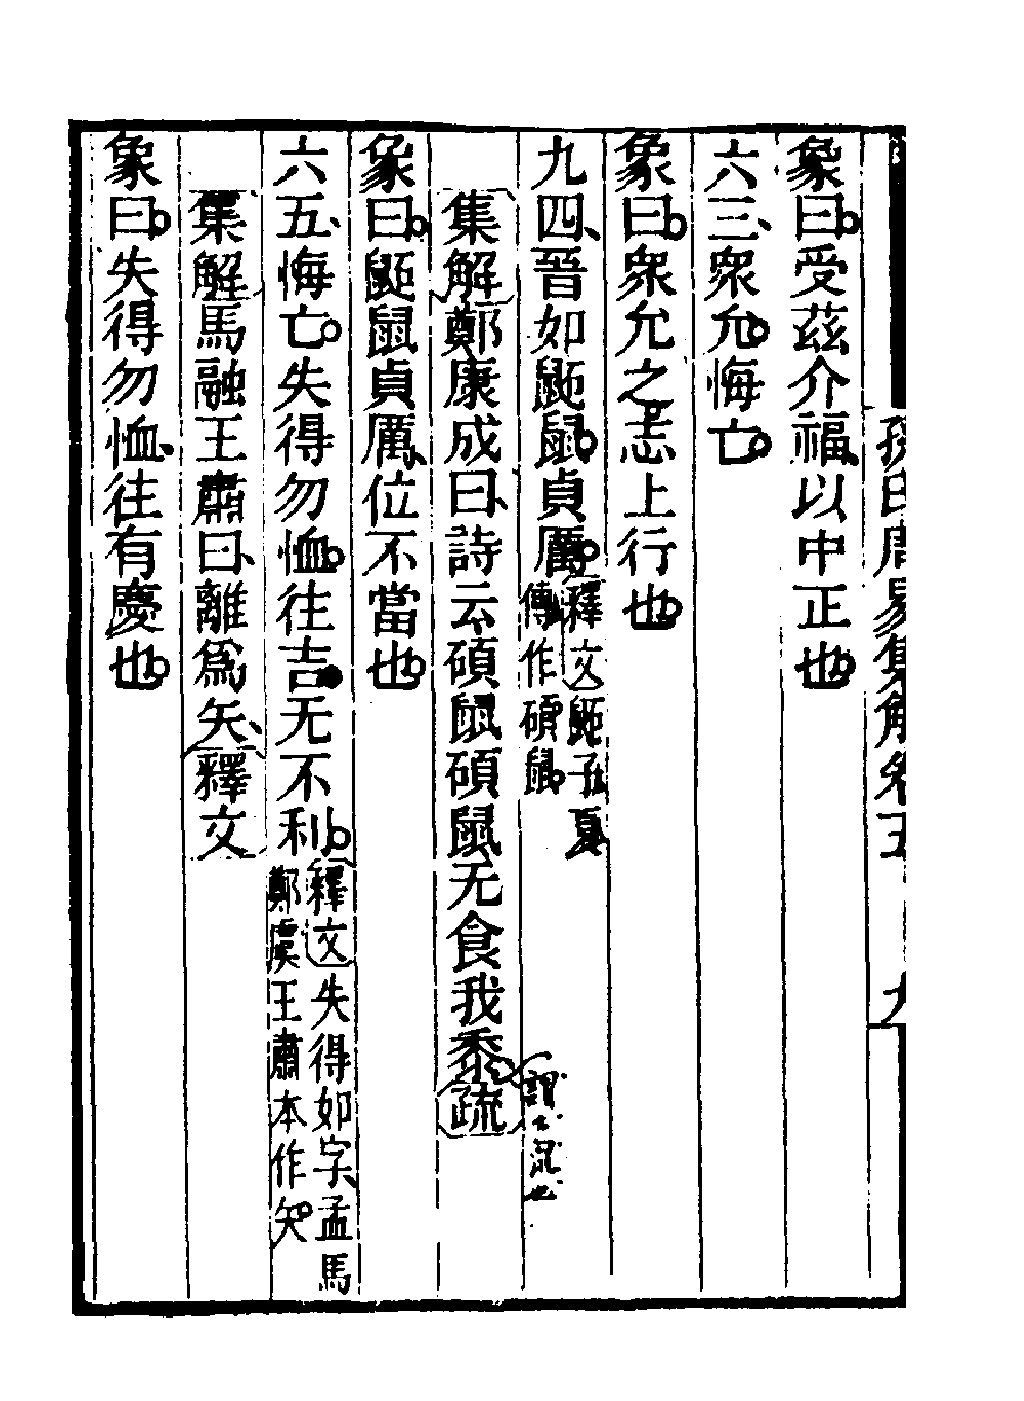 孫氏周易集解卷五 九
象曰受茲介福以中正也
六三、衆允悔亡
象曰衆允之志上行也
九四、晉如鼫鼠貞厲
釋文鼫子夏
傳作碩鼠
集解鄭康成曰、詩云碩鼠碩鼠无食我黍疏
謂大鼠也
象曰鼫鼠貞厲、位不當也
六五、悔亡失得勿恤往吉无不利
釋文失得如字、孟馬
鄭虞王肅本作矢
集解馬融王肅曰、離爲矢、釋文
象曰失得勿恤、往有慶也